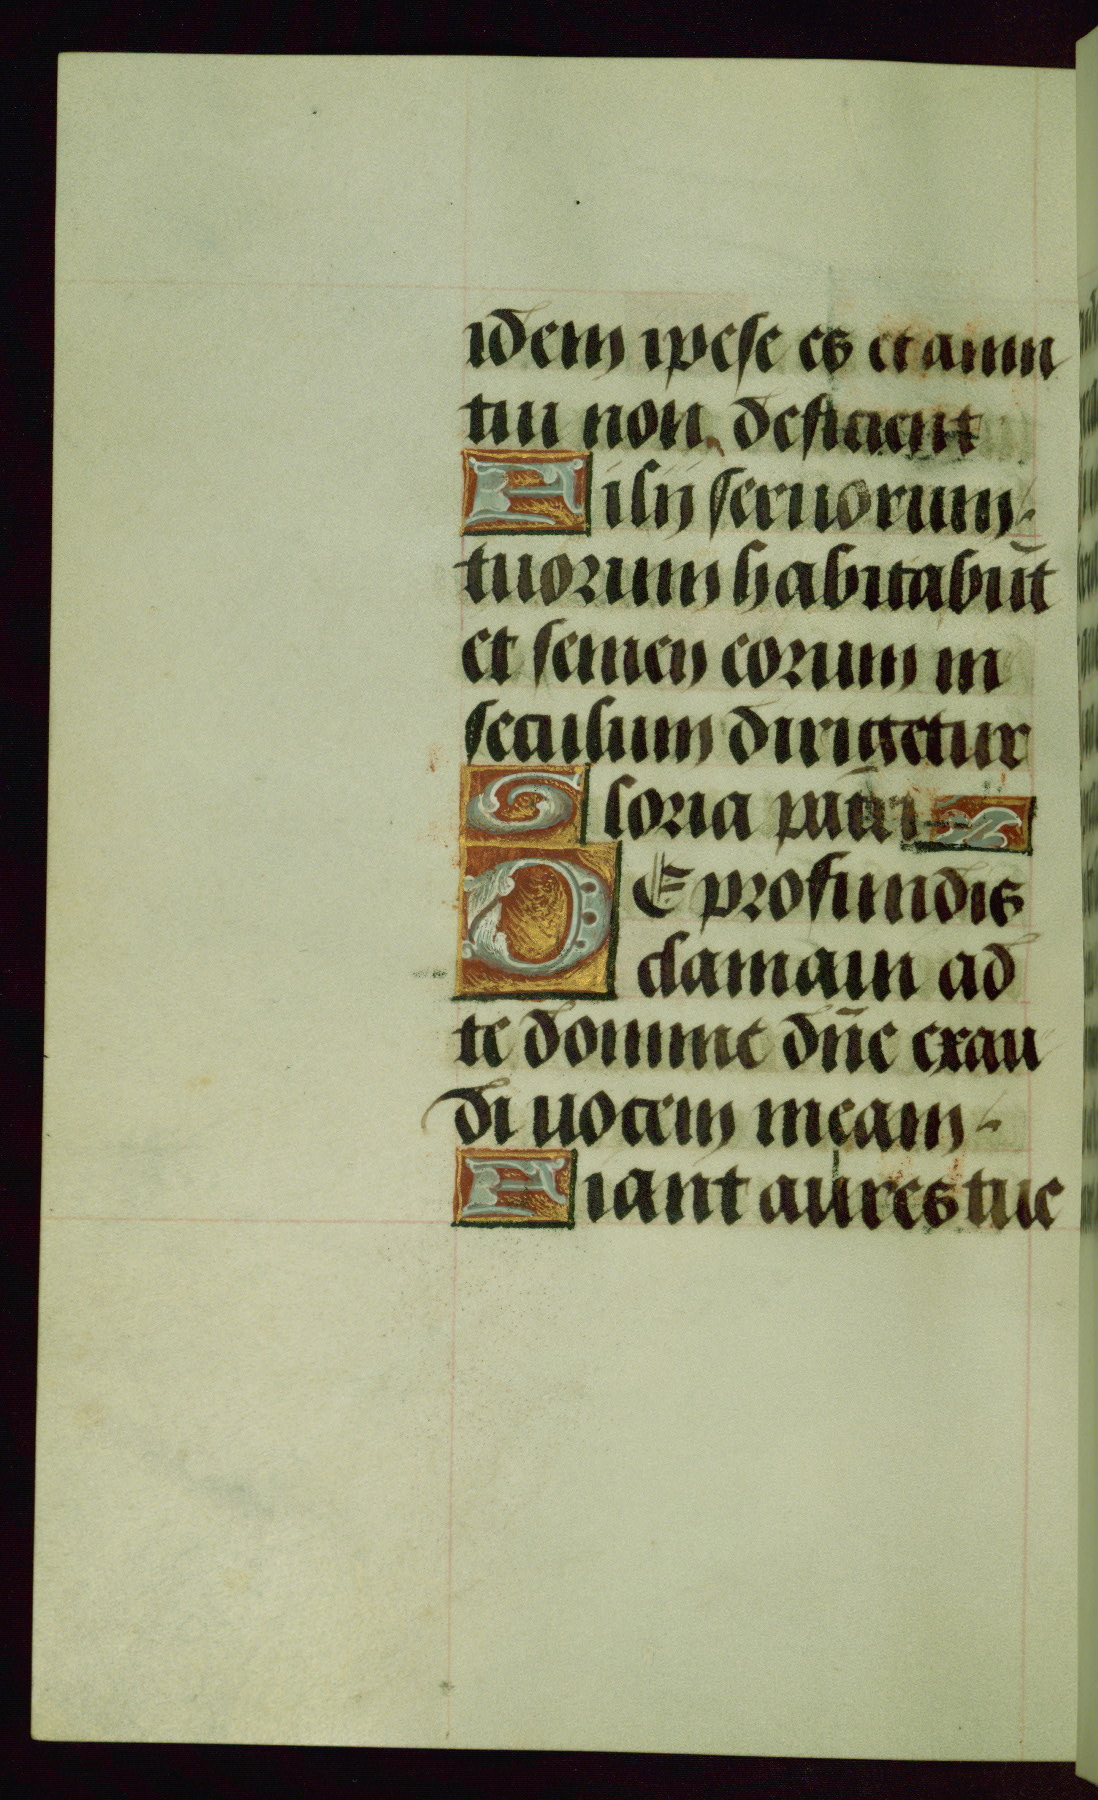 idem ipese es et anni
tui non deficient
Filij seruorum
tuorum habitabūt
et semen eorum in
seculum dirigetur
Gloria patri
DE profundis
clamaui ad
te domine dn̄e exau
di uocem meam
Fiant aures tue